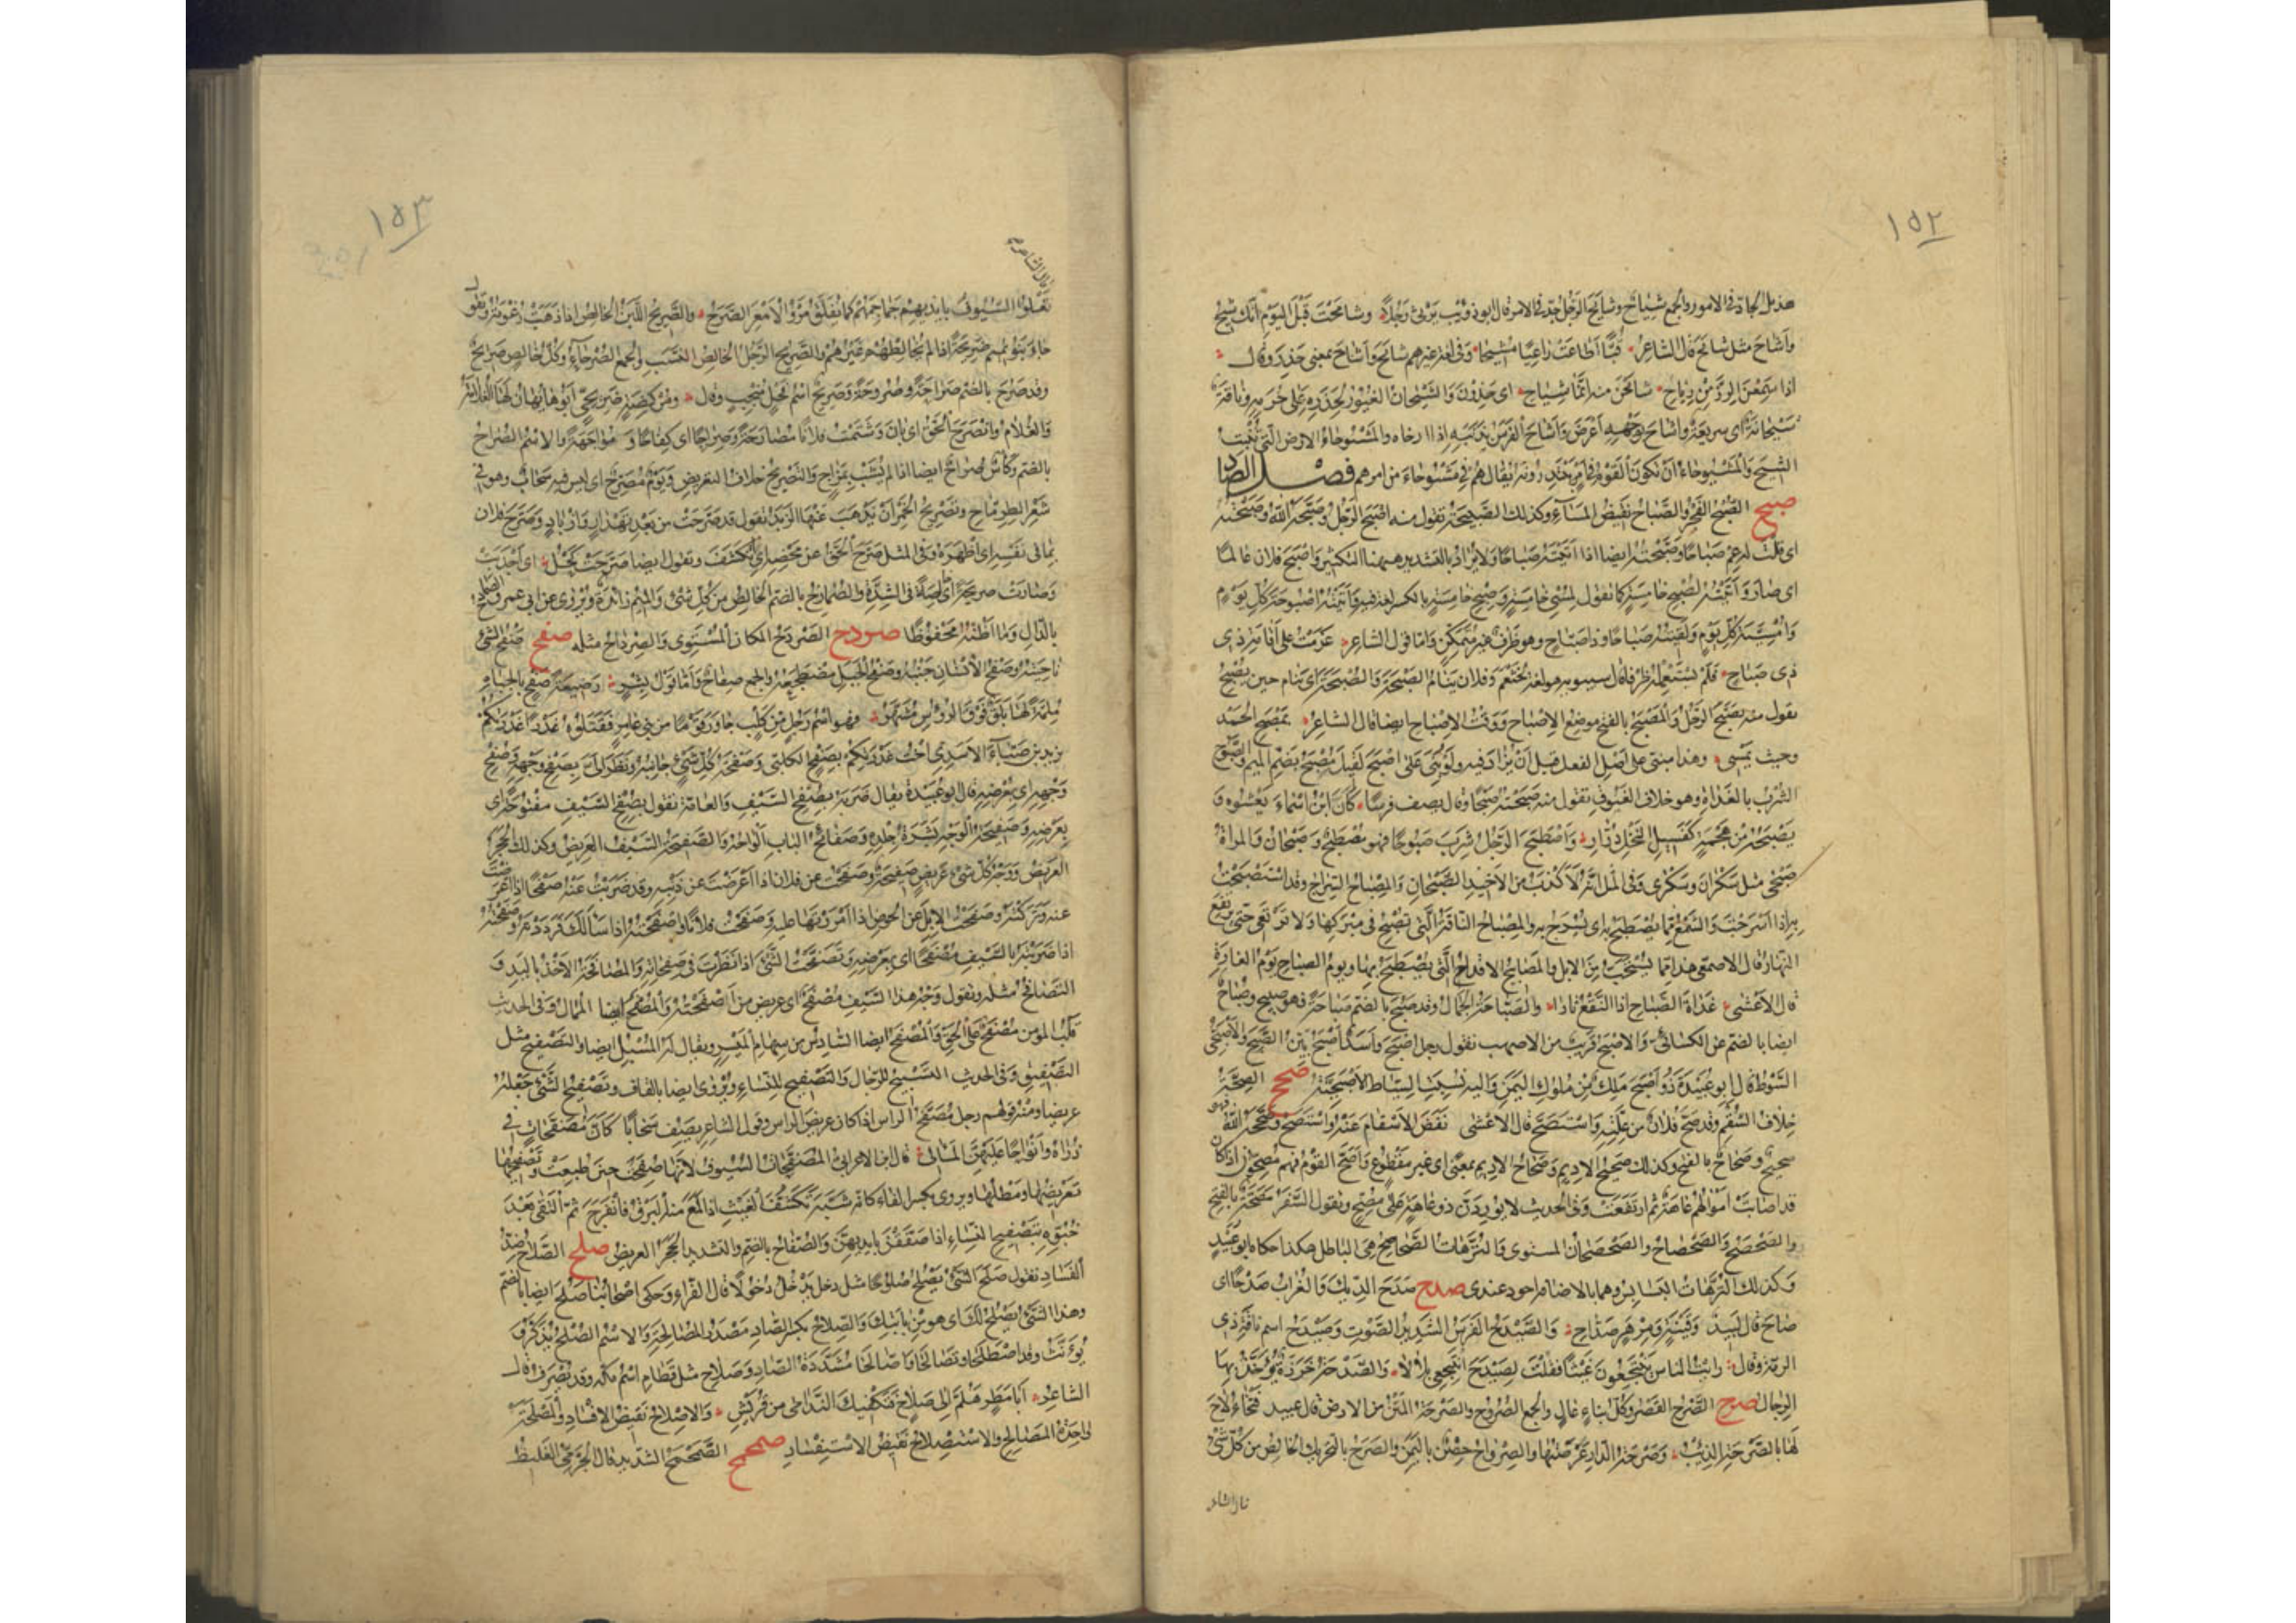 ١٥٢
هذيل الجاد في الامور والجمع شياح وشايح الرجل جد في الامر قال ابو ذؤيب يرثي رجلا وشايحت قبل اليوم انك شيح
واشاح مثل شايح قال الشاعر قبا اطاعت راعيا مشيحا وفي لغة غيرهم شايح واشاح بمعنى حذر وقال
اذا سمعن الرز من رباح شايحن منه ايما شياح اي حذرن والشيحان الغيور لحذره على حرمه وناقة
شيحانة اي سريعة واشاح بوجهه اعرض واشاح الفرس بذنبه اذا ارخاه والمشيوحاء الارض التي تنبت
الشيح والمشيوحاء ان يكون القوم في امر يبتدرونه يقال هم في مشيوحاء من امرهم فصل الصاد
صبح الصبح الفجر والصباح نقيض المساء وكذلك الصبيحة تقول منه اصبح الرجل وصبحه الله وصبحته
اي قلت له عم صباحا وصبحته ايضا اذا اتيته صباحا ولا يراد بالتشديد ههنا التكثير واصبح فلان عالما
اي صار واتيته لصبح خامسة كما تقول لمسي خامسة وصبح خامسة بالكسر لغة فيه واتيته اصبوحة كل يوم
وامسية كل يوم ولقيته صباحا وذا صباح وهو ظرف غير متمكن واما قول الشاعر عزمت على اقامة ذي
ذي صباح فلم يستعمله ظرفا قال سيبويه هو لغة لخثعم وفلان ينام الصبحة والصبحة اي ينام حين يصبح
تقول منه تصبح الرجل والمصبح بالفتح موضع الاصباح ووقت الاصباح ايضا قال الشاعر بمصبح الحمد
وحيث يمسي وهذا مبني على اصل الفعل قبل ان يزاد فيه ولو بني على اصبح لقيل مصبح بضم الميم والصبوح
الشرب بالغداة وهو خلاف الغبوق تقول منه صبحته صبحا وقال يصف فرسا كان ابن اسماء يعشوه و
يصبحه من هجمة كفسيل النخل درار واصطبح الرجل شرب صبوحا فهو مصطبح وصبحان والمراة
صبحى مثل سكران وسكرى وفي المثل انه لاكذب من الاخيذ الصبحان والمصباح السراج وقد استصبحت
به اذا اسرجت والشمع مما يصطبح به اي يسرج به والمصباح الناقة التي تصبح في مبركها ولا ترتعي حتى يرتفع
النهار قال الاصمعي هذا مما يستحب من الابل والمصابح الاقداح التي يصطبح بها ويوم الصباح يوم الغارة
قال الاعشى غداة الصباح اذا النقع ثارا والصباحة الجمال وقد صبح بالضم صباحة فهو صبيح وصباح
ايضا بالضم عن الكسائي والاصبح قريب من الاصهب تقول رجل اصبح واسد اصبح بين الصبح والاصبحي
السوط قال ابو عبيدة ذو اصبح ملك من ملوك اليمن واليه نسبت السياط الاصبحية صحح الصحة
خلاف السقم وقد صح فلان من علته واستصح قال الاعشى نفض الاسقام عنه واستصح وصححه الله فهو
صحيح وصحاح بالفتح وكذلك صحيح الاديم وصحاح الاديم بمعنى اي غير مقطوع واصح القوم فهم مصحون اذا كان
قد اصابت اموالهم عاهة ثم ارتفعت وفي الحديث لا يوردن ذو عاهة على مصح وتقول السفر مصحة بالفتح
والصحصح والصحصاح والصحصحان المستوى والترهات الصحاصح هي الباطل هكذا حكاه ابو عبيد
وكذلك الترهات البسابس وهما بالاضافة اجود عندي صدح صدح الديك والغراب صدحا اي
صاح قال لبيد وقينة ومزهر صداح والصيدح الفرس الشديد الصوت وصيدح اسم ناقة ذي
الرمة وقال رايت الناس ينتجعون غيثا فقلت لصيدح انتجعي بلالا والصدحة خرزة يؤخذ بها
الرجال صرح الصرح القصر وكل بناء عال والجمع الصروح والصرحة المتن من الارض قال عبيد فتخاء لاح
لها بالصرحة الذيب وصرحة الدار عرصتها والصرواح حصن باليمن والصرح بالتحريك الخالص من كل شي
١٥٣
تعلو السيوف بايديهم جماجمهم كما يفلق مرو الامعز الصرح والصريح اللبن الخالص اذا ذهبت رغوته وتقول
جاء بنو تميم صريحة اذا لم يخالطهم غيرهم والصريح الرجل الخالص النسب والجمع الصرحاء وكل خالص صريح
وقد صرح بالضم صراحة وصروحة وصريح اسم فحل منجب وقال ومركضة صريحي ابوها يهان لها الغلامة
والغلام وانصرح الحق اي بان وشتمت فلانا مصارحة وصراحا اي كفاحا ومواجهة والاسم الصراح
بالضم وكاس صراح ايضا اذا لم تشب بمزاج والتصريح خلاف التعريض ويوم مصرح اي ليس فيه سحاب وهو في
شعر الطرماح وتصريح الخمر ان يذهب عنها الزبد تقول قد صرحت من بعد تهدار وازباد وصرح فلان
بما في نفسه اي اظهره وفي المثل صرح الحق عن محضه اي انكشف وتقول ايضا صرحت كحل اي اجدبت
وصارت صريحة اي خالصة في الشدة والصمارح بالضم الخالص من كل شي والميم زائدة ويروى عن ابي عمرو الصمادح
بالدال وما اظنه محفوظا صردح الصردح المكان المستوي والصرداح مثله صفح صفح الشي
ناحيته وصفح الانسان جنبه وصفح الجبل مضطجعه والجمع صفاح واما قول بشر رضيعة صفح بالجباه
ملمة لها بلق فوق الرؤوس مشهر فهو اسم رجل من كلب جاور قوما من بني عامر فقتلوه غدرا غدرتكم
بزيد بن ضباء الاسدي اخت غدرتكم بصفح الكلبي وصفحة كل شي جانبه ونظر الي بصفح وجهه وصفح
وجهه اي بعرضه قال ابو عبيدة يقال ضربه بصفح السيف والعامة تقول بصفح السيف مفتوحة اي
بعرضه وصفيحة الوجه بشرة جلده وصفائح الباب الواحه والصفيحة السيف العريض وكذلك الحجر
العريض ووجه كل شي عريض صفيحة وصفحت عن فلان اذا اعرضت عن ذنبه وقد ضربت عنه صفحا اذا اعرضت
عنه وتركته وصفحت الابل عن الحوض اذا امررتها عليه وصفحت فلانا واصفحته اذا سالك فرددته وصفحته
اذا ضربته بالسيف مصفحا اي بعرضه وتصفحت الشي اذا نظرت في صفحاته والمصافحة الاخذ باليد و
التصافح مثله وتقول وجه هذا السيف مصفح اي عريض من اصفحته والمصفح ايضا الممال وفي الحديث
قلب المومن مصفح على الحق والمصفح ايضا السادس من سهام الميسر ويقال له المسبل ايضا والتصفيح مثل
التصفيق وفي الحديث التسبيح للرجال والتصفيح للنساء ويروى ايضا بالقاف وتصفيح الشي جعله
عريضا ومنه قولهم رجل مصفح الراس اذا كان عريض الراس وقول الشاعر يصف سحابا كان مصفحات في
ذراه وانواحا عليهن المآلي قال ابن الاعرابي المصفحات السيوف لانها صفحت حين طبعت وتصفيحها
تعريضها ومطلها ويروى بكسر الفاء كانه شبه تكشف الغيث اذا لمع منه البرق فانفرج ثم التقى بعد
خبوه بتصفيح النساء اذا صفقن بايديهن والصفاح بالضم والتشديد الحجر العريض صلح الصلاح ضد
الفساد تقول صلح الشي يصلح صلوحا مثل دخل يدخل دخولا قال الفراء وحكى اصحابنا صلح ايضا بالضم
وهذا الشي يصلح لك اي هو من بابتك والصلاح بكسر الصاد مصدر المصالحة والاسم الصلح يذكر و
يؤنث وقد اصطلحا وتصالحا واصالحا مشددة الصاد وصلاح مثل قطام اسم مكة وقد تصرف قال
الشاعر ابا مطر هلم الى صلاح فتكفيك الندامى من قريش والاصلاح نقيض الافساد والمصلحة
واحدة المصالح والاستصلاح نقيض الاستفساد صمحمح الصمحمح الشديد قال الجرمي الغليظ